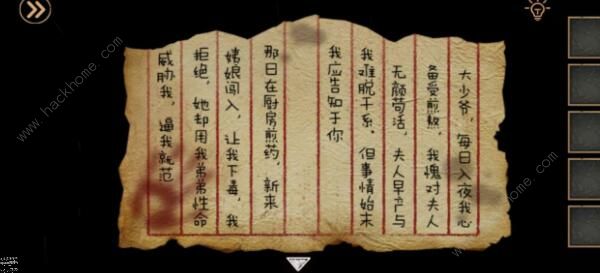 大少爷，每日入夜我心
备受煎熬，我愧对夫人
无颜苟活，夫人早产与
我难脱干系。但事情始末
我应告知于你
那日在厨房煎药，新来
姨娘闯入，让我下毒，我
拒绝，她却用我弟弟性命
威胁我，逼我就范
www.hackhome.com